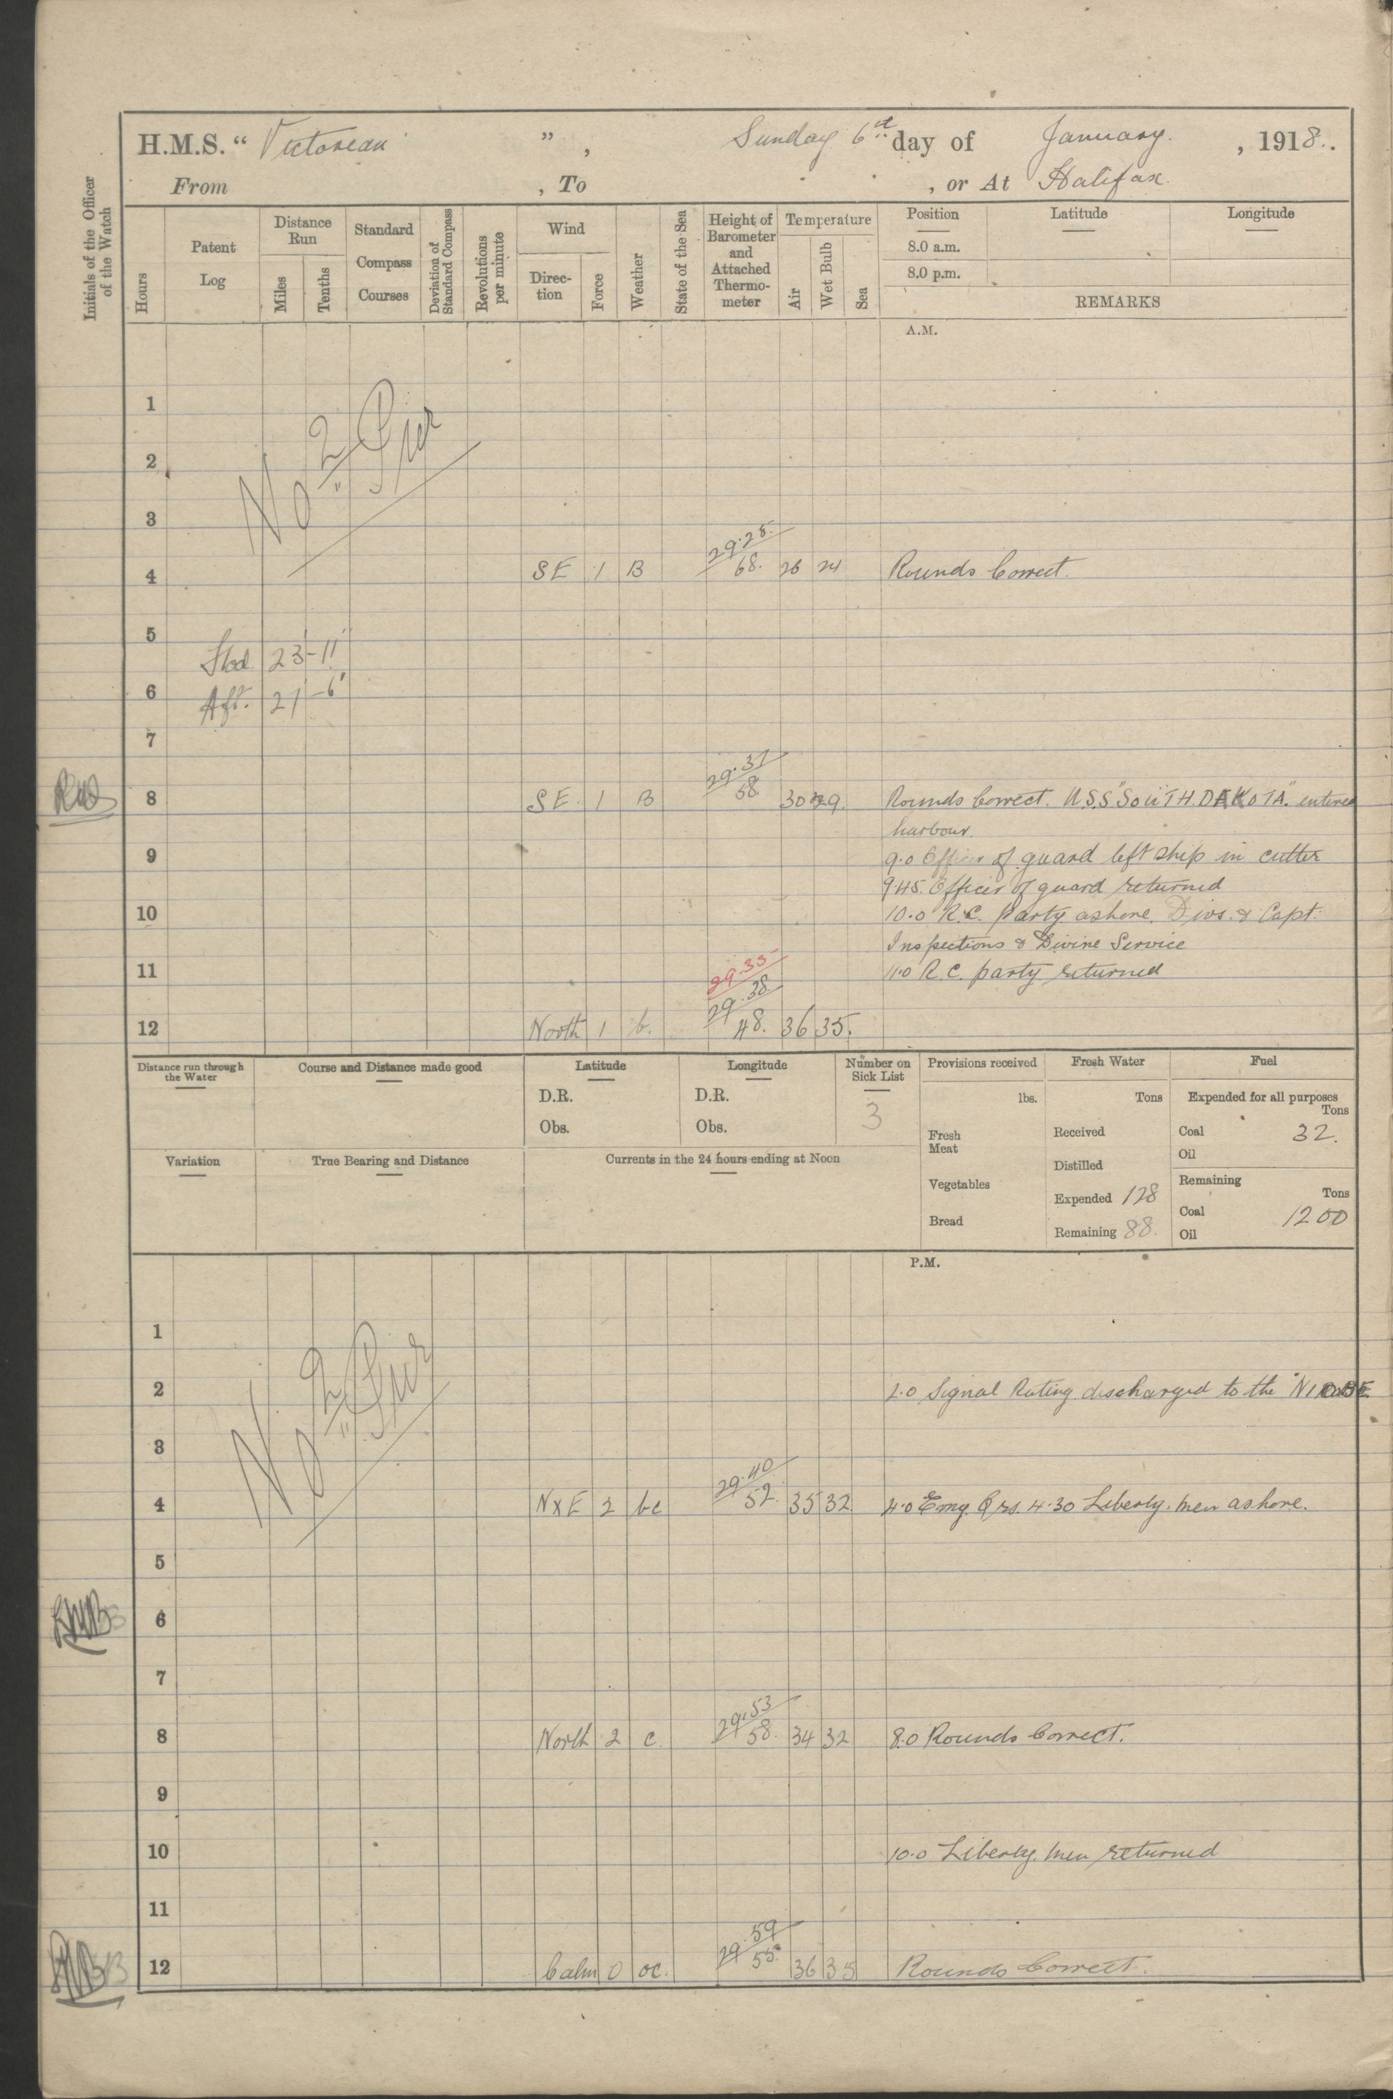 H.M.S. “ Victorian ” , Sunday 6th day of January. , 1918.
From , To , or At Halifax.
Initials of the Officer of the Watch
Hours
Patent Log
Distance Run
Miles
Tenths
Standard Compass Courses
Deviation of Standard Compass
Revolutions per minute
Wind
Direction
Force
Weather
State of the Sea
Height of Barometer and Attached Thermometer
Temperature
Air
Wet Bulb
Sea
Position Latitude Longitude
8.0 a.m.
8.0 p.m.
REMARKS
A.M.
1
2
No 2 Pier
3
4 SE 1 B 29.28 68. 26 24 Rounds Correct.
5
Fwd 23'-11"
6
Aft. 21'-6"
7
8 SE 1 B 29.37 58 30 29. Rounds Correct. U.S.S "SOUTH DAKOTA" entered
harbour.
9 9.0 Officer of guard left ship in cutter
9.45. Officer of guard returned
10 10.0 R.C. party ashore. Divs. & Capt.
Inspections & Divine Service
11 11.0 R.C. party returned
29.35
12 North 1 b. 29.38 48. 36 35.
Distance run through the Water
Course and Distance made good
Latitude
D.R.
Obs.
Longitude
D.R.
Obs.
Number on Sick List
3
Variation
True Bearing and Distance
Currents in the 24 hours ending at Noon
Provisions received
lbs.
Fresh Meat
Vegetables
Bread
Fresh Water
Tons
Received
Distilled
Expended 128
Remaining 88.
Fuel
Expended for all purposes
Tons
Coal 32.
Oil
Remaining
Tons
Coal 1200
Oil
P.M.
1
2 2.0 Signal Rating discharged to the "NIOBE
No 2 Pier
3
4 NxE 2 bc 29.40 52. 35 32 4.0 Emg. Qrs. 4.30 Liberty men ashore.
5
6
7
8 North 2 c. 29.53 58. 34 32 8.0 Rounds Correct.
9
10 10.0 Liberty men returned
11
12 Calm 0 oc. 29.59 55. 36 35 Rounds Correct.